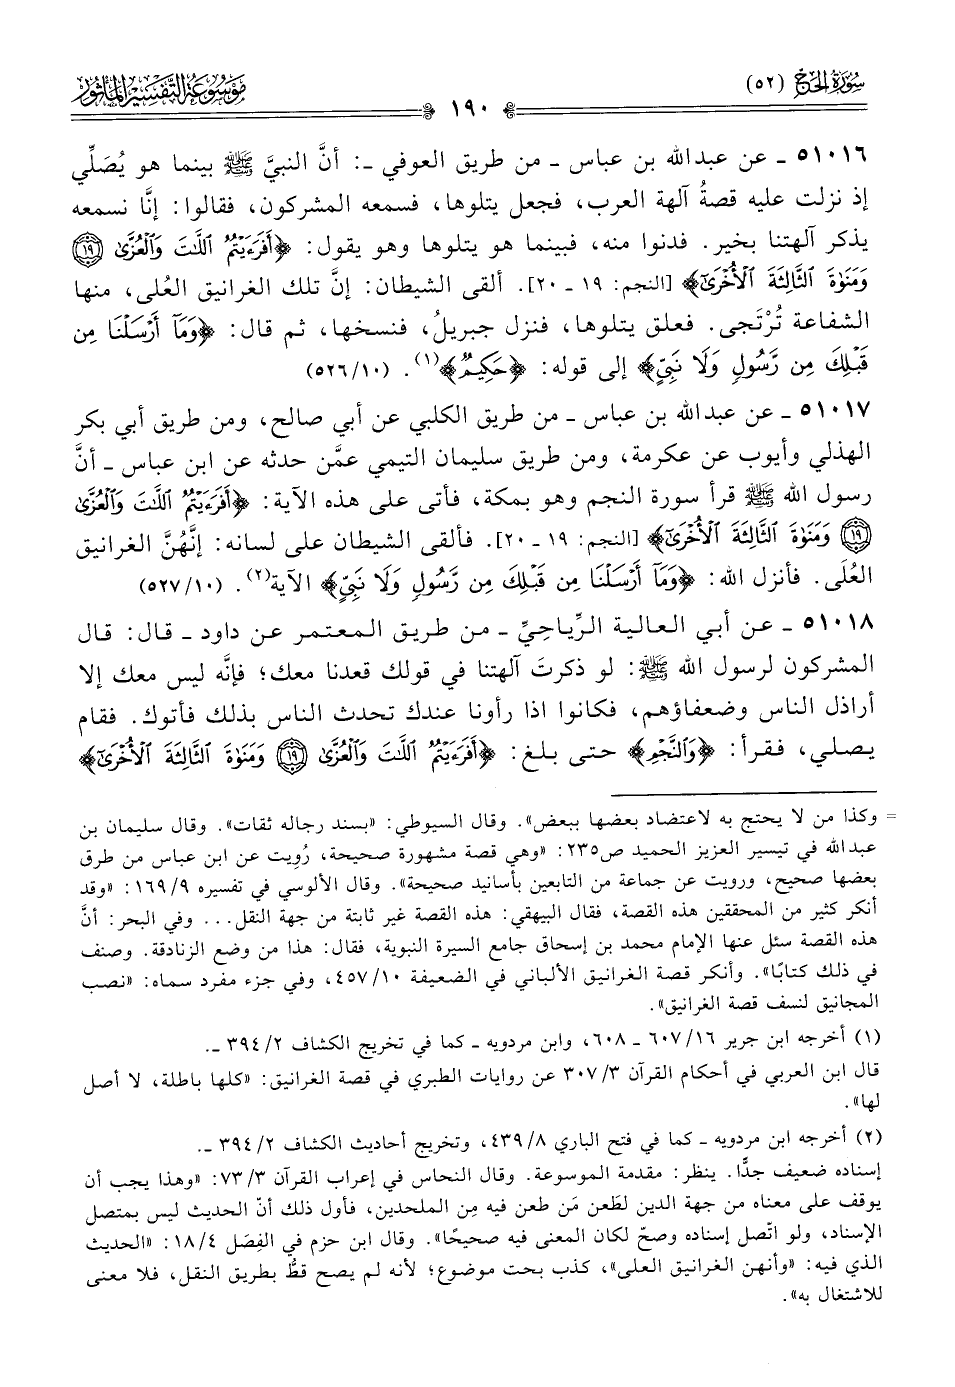 سورة الحج (٥٢)
١٩٠
موسوعة التفسير المأثور
٥١٠١٦ ـ عن عبدالله بن عباس ـ من طريق العوفي ـ: أنَّ النبيَّ ﷺ بينما هو يُصَلِّي
إذ نزلت عليه قصةُ آلهة العرب، فجعل يتلوها، فسمعه المشركون، فقالوا: إنَّا نسمعه
يذكر آلهتنا بخير. فدنوا منه، فبينما هو يتلوها وهو يقول: ﴿أَفَرَءَيْتُمُ ٱللَّٰتَ وَٱلْعُزَّىٰ ١٩
وَمَنَوٰةَ ٱلثَّالِثَةَ ٱلْأُخْرَىٰٓ﴾ [النجم: ١٩ ـ ٢٠]. ألقى الشيطان: إنَّ تلك الغرانيق العُلى، منها
الشفاعة تُرْتَجى. فعلق يتلوها، فنزل جبريلُ، فنسخها، ثم قال: ﴿وَمَآ أَرْسَلْنَا مِن
قَبْلِكَ مِن رَّسُولٍ وَلَا نَبِيٍّ﴾ إلى قوله: ﴿حَكِيمٌ﴾(١). (١٠/٥٢٦)
٥١٠١٧ ـ عن عبدالله بن عباس ـ من طريق الكلبي عن أبي صالح، ومن طريق أبي بكر
الهذلي وأيوب عن عكرمة، ومن طريق سليمان التيمي عمَّن حدثه عن ابن عباس ـ أنَّ
رسول الله ﷺ قرأ سورة النجم وهو بمكة، فأتى على هذه الآية: ﴿أَفَرَءَيْتُمُ ٱللَّٰتَ وَٱلْعُزَّىٰ
١٩ وَمَنَوٰةَ ٱلثَّالِثَةَ ٱلْأُخْرَىٰٓ﴾ [النجم: ١٩ ـ ٢٠]. فألقى الشيطان على لسانه: إنَّهُنَّ الغرانيق
العُلَى. فأنزل الله: ﴿وَمَآ أَرْسَلْنَا مِن قَبْلِكَ مِن رَّسُولٍ وَلَا نَبِيٍّ﴾ الآية(٢). (١٠/٥٢٧)
٥١٠١٨ ـ عن أبي العالية الرِّياحِيِّ ـ من طريق المعتمر عن داود ـ قال: قال
المشركون لرسول الله ﷺ: لو ذكرتَ آلهتنا في قولك قعدنا معك؛ فإنَّه ليس معك إلا
أراذل الناس وضعفاؤهم، فكانوا اذا رأونا عندك تحدث الناس بذلك فأتوك. فقام
يصلي، فقرأ: ﴿وَٱلنَّجْمِ﴾ حتى بلغ: ﴿أَفَرَءَيْتُمُ ٱللَّٰتَ وَٱلْعُزَّىٰ ١٩ وَمَنَوٰةَ ٱلثَّالِثَةَ ٱلْأُخْرَىٰٓ﴾
= وكذا من لا يحتج به لاعتضاد بعضها ببعض». وقال السيوطي: «بسند رجاله ثقات». وقال سليمان بن
عبدالله في تيسير العزيز الحميد ص٢٣٥: «وهي قصة مشهورة صحيحة، رُويت عن ابن عباس من طرق
بعضها صحيح، ورويت عن جماعة من التابعين بأسانيد صحيحة». وقال الألوسي في تفسيره ٩/١٦٩: «وقد
أنكر كثير من المحققين هذه القصة، فقال البيهقي: هذه القصة غير ثابتة من جهة النقل... وفي البحر: أنَّ
هذه القصة سئل عنها الإمام محمد بن إسحاق جامع السيرة النبوية، فقال: هذا من وضع الزنادقة. وصنف
في ذلك كتابًا». وأنكر قصة الغرانيق الألباني في الضعيفة ١٠/٤٥٧، وفي جزء مفرد سماه: «نصب
المجانيق لنسف قصة الغرانيق».
(١) أخرجه ابن جرير ١٦/٦٠٧ ـ ٦٠٨، وابن مردويه ـ كما في تخريج الكشاف ٢/٣٩٤ ـ.
قال ابن العربي في أحكام القرآن ٣/٣٠٧ عن روايات الطبري في قصة الغرانيق: «كلها باطلة، لا أصل
لها».
(٢) أخرجه ابن مردويه ـ كما في فتح الباري ٨/٤٣٩، وتخريج أحاديث الكشاف ٢/٣٩٤ ـ.
إسناده ضعيف جدًّا. ينظر: مقدمة الموسوعة. وقال النحاس في إعراب القرآن ٣/٧٣: «وهذا يجب أن
يوقف على معناه من جهة الدين لطَعن مَن طعن فيه مِن الملحدين، فأول ذلك أنّ الحديث ليس بمتصل
الإسناد، ولو اتّصل إسناده وصحّ لكان المعنى فيه صحيحًا». وقال ابن حزم في الفِصَل ٤/١٨: «الحديث
الذي فيه: «وأنهن الغرانيق العلى»، كذب بحت موضوع؛ لأنه لم يصح قطُّ بطريق النقل، فلا معنى
للاشتغال به».